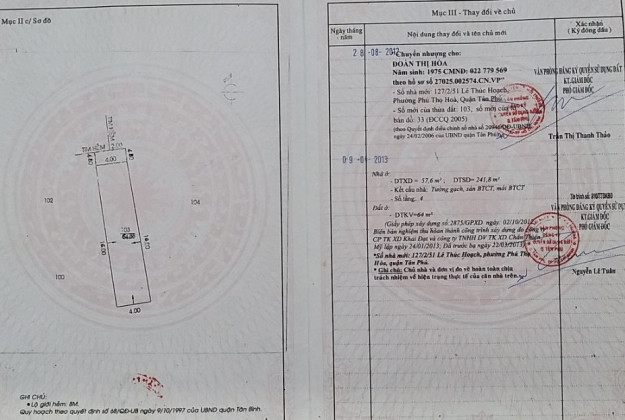 Mục II c/ Sơ đồ
TIM HẺM
2.00
4.00
4.80
4.80
102
103
64.00
104
100
16.00
16.00
4.00
GHI CHÚ:
• Lộ giới hẻm: 8M.
Quy hoạch theo quyết định số 68/QĐ-UB ngày 9/10/1997 của UBND quận Tân Bình.
Mục III - Thay đổi về chủ
Ngày tháng - năm
Nội dung thay đổi và tên chủ mới
Xác nhận
( Ký đóng dấu)
28-08-2012
Chuyển nhượng cho:
ĐOÀN THỊ HÒA
Năm sinh: 1975 CMND: 022 779 569
theo hồ sơ số 27025.002574.CN.VP"
- Số nhà mới: 127/2/51 Lê Thúc Hoạch,
Phường Phú Thọ Hoà, Quận Tân Phú
- Số mới của thửa đất: 103, số mới của tờ
bản đồ: 33 (ĐCCQ 2005)
(theo Quyết định điều chỉnh số nhà số
24/02/2006 của UBND quận Tân Phú)
VĂN PHÒNG ĐĂNG KÝ QUYỀN SỬ DỤNG ĐẤT
KT.GIÁM ĐỐC
PHÓ GIÁM ĐỐC
Trần Thị Thanh Thảo
09-04-2013
Nhà ở
- DTXD = 37,6 m², DTSD= 241,8 m²
- Kết cấu nhà: Tường gạch, sàn BTCT, mái BTCT
- Số tầng: 4
Đất ở
- DTKV=64 m²
(Giấy phép xây dựng số 2875/GPXD ngày 02/10/2012
Biên bản nghiệm thu hoàn thành công trình xây dựng do công ty
CP TK XD Khai Đạt và công ty TNHH DV TK XD Chấn Thiên
Mỹ lập ngày 24/01/2013, Đã trước bạ ngày 22/03/2013)
*Số nhà mới: 127/2/51 Lê Thúc Hoạch, phường Phú Thọ
Hòa, quận Tân Phú.
* Ghi chú: Chủ nhà và đơn vị đo vẽ hoàn toàn chịu
trách nhiệm về hiện trạng thực tế của căn nhà trên.
VĂN PHÒNG ĐĂNG KÝ QUYỀN SỬ DỤNG ĐẤT
KT.GIÁM ĐỐC
PHÓ GIÁM ĐỐC
Nguyễn Lê Tuân